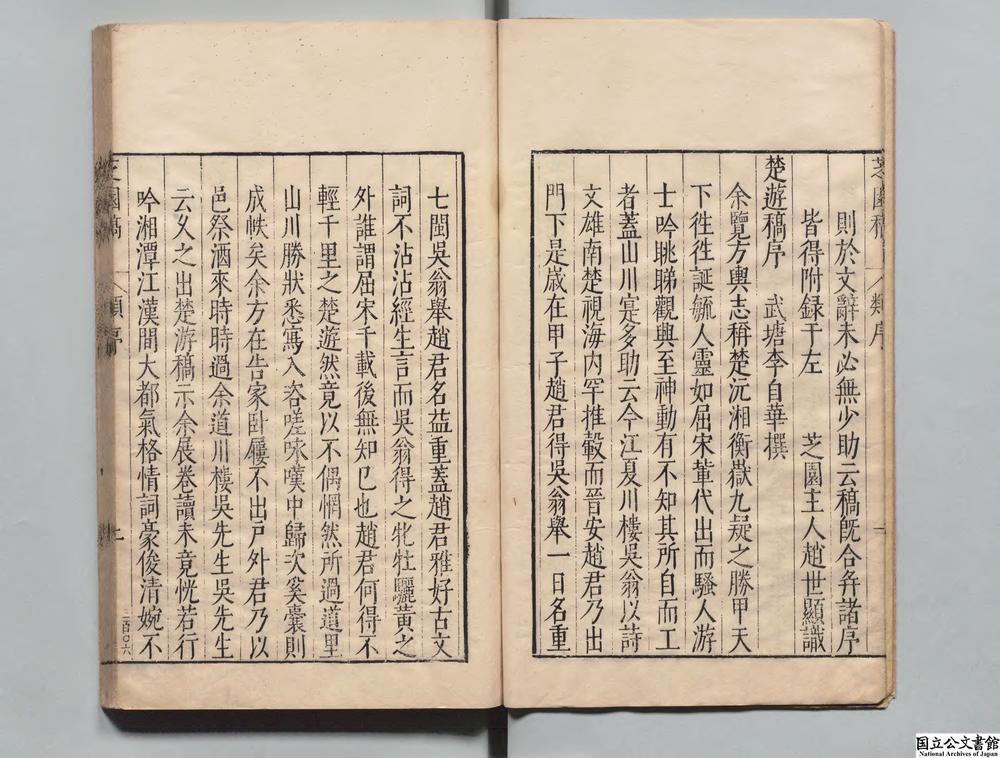 則於文辭未必無少助云稿旣合弁諸序
皆得附録于左　芝園主人趙世顯識
楚遊稿序　武塘李自華撰
余覽方輿志稱楚沅湘衡嶽九疑之勝甲天
下徃徃誕毓人靈如屈宋軰代出而騷人游
士吟眺睇觀興至神動有不知其所自而工
者蓋山川寔多助云今江夏川樓吳翁以詩
文雄南楚視海内罕推轂而晉安趙君乃出
門下是歲在甲子趙君得吳翁舉一日名重
七閩吳翁舉趙君名益重蓋趙君雅好古文
詞不沾沾經生言而吳翁得之牝牡驪黃之
外誰謂屈宋千載後無知已也趙君何得不
輕千里之楚遊然竟以不偶惘然所過道里
山川勝狀悉寓入咨嗟咏嘆中歸次奚囊則
成帙矣余方在告家卧屨不出戸外君乃以
邑祭酒來時時過余道川樓吳先生吳先生
云久之出楚游稿示余展卷讀未竟恍若行
吟湘潭江漢間大都氣格情詞豪俊清婉不
芝園稿
類序
一
二百〇六
国立公文書館
National Archives of Japan